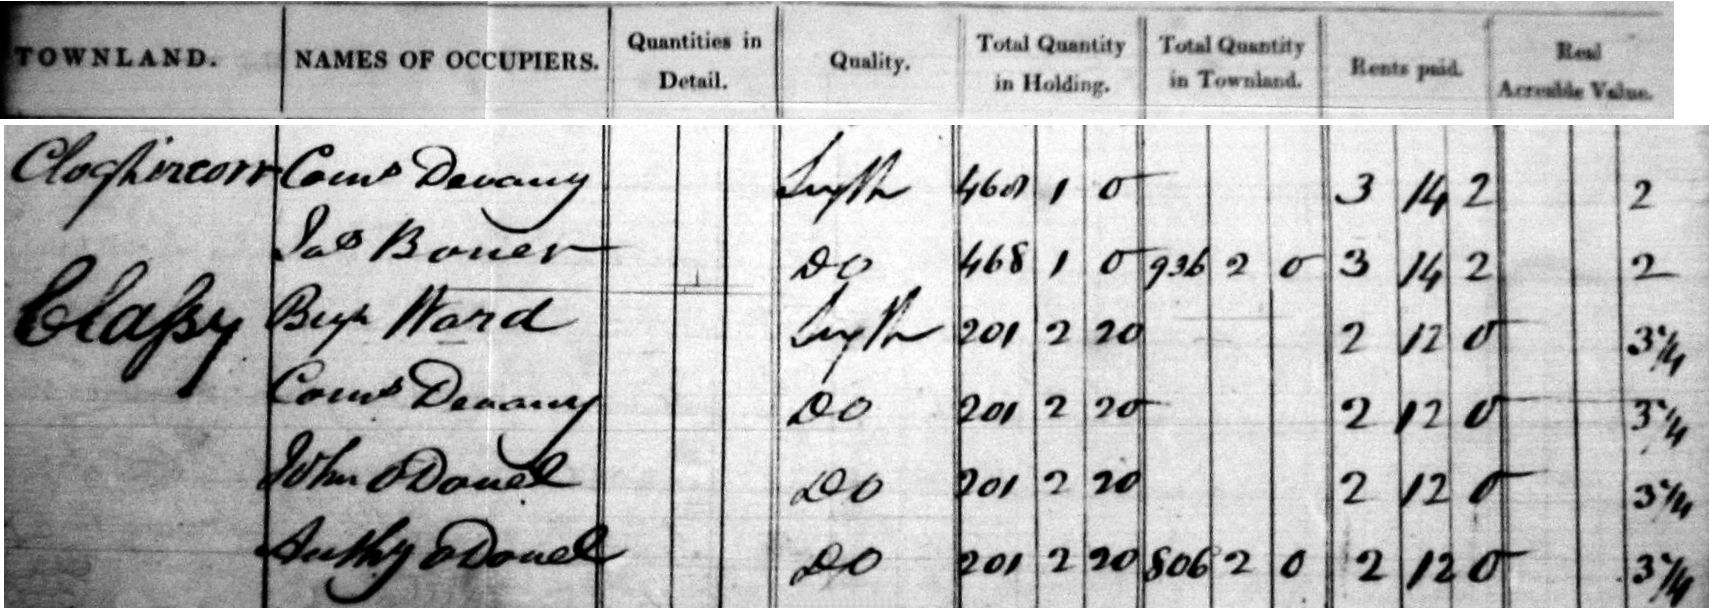 TOWNLAND. NAMES OF OCCUPIERS. Quantities in Detail. Quality. Total Quantity in Holding. Total Quantity in Townland. Rents paid. Real Acreable Value.
Cloghircorr Conns Devany 468 1 0 3 14 2 2
Jas Boner Do 468 1 0 936 2 0 3 14 2 2
Classy Ward 201 2 20 2 12 0 3 1/4
Conns Devany Do 201 2 20 2 12 0 3 1/4
John O Donel Do 201 2 20 2 12 0 3 1/4
Anthy O Donel Do 201 2 20 806 2 0 2 12 0 3 1/4